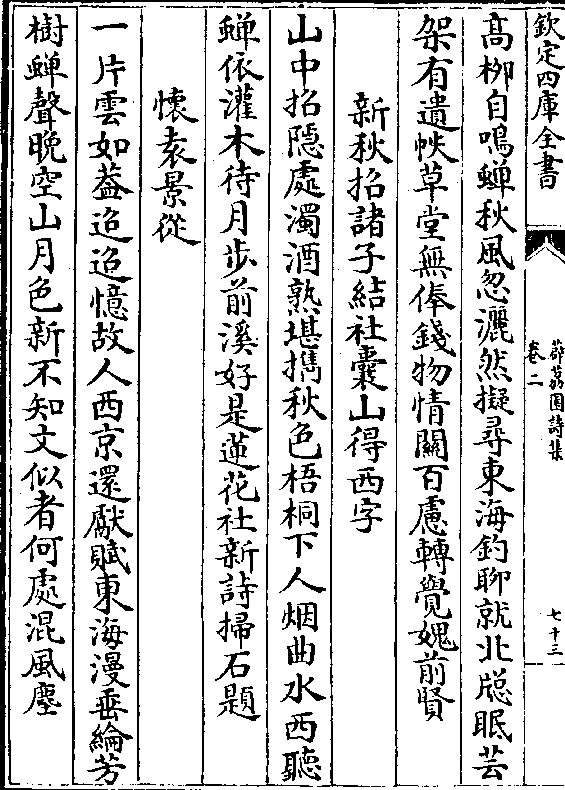 欽定四庫全書
薜荔園詩集
卷二
七十三
高栁自鳴蟬秋風忽灑然擬尋東海釣聊就北牎眠芸
架有遺帙草堂無俸錢物情關百慮轉覺媿前賢
新秋招諸子結社囊山得西字
山中招隠處濁酒熟堪擕秋色梧桐下人烟曲水西聽
蟬依灌木待月步前溪好是蓮花社新詩掃石題
懷袁景從
一片雲如葢迢迢憶故人西京還獻賦東海漫垂綸芳
樹蟬聲晚空山月色新不知文似者何處混風塵